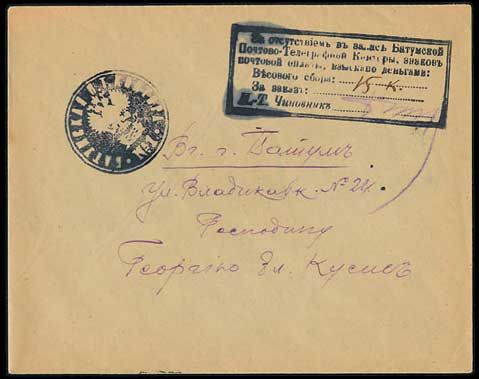 За отсутствіемъ въ запасѣ Батумской
Почтово-Телеграфной Конторы, знаковъ
почтовой оплаты, взыскано деньгами:
Вѣсового сбора: 15 к.
За заказъ:
П.-Т. Чиновникъ
Вг. г. Батумъ
Ул. Владикавк. № 24
Господину
Георгію Вл.